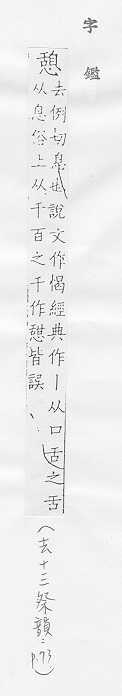 字鑑
憩
去例切息也說文作愒經典作丨从口舌之舌
从息俗上从千百之千作憇皆誤
（去十三祭韻：p.73）